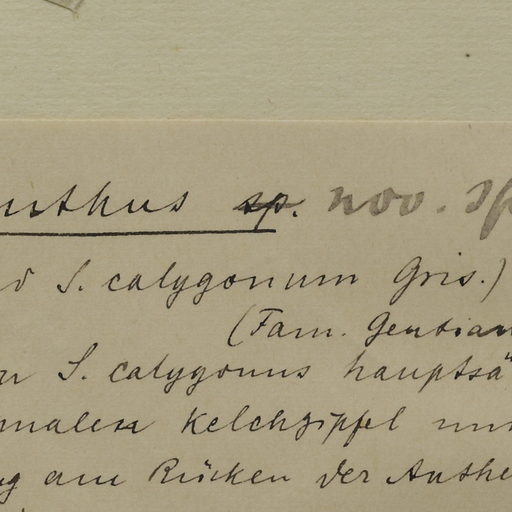 nthus sp. nov. sp
S. calygonum Gris.)
(Fam. Gentian
S. calygonus hauptsä
malen Kelchzipfel
am Rücken der Anthe